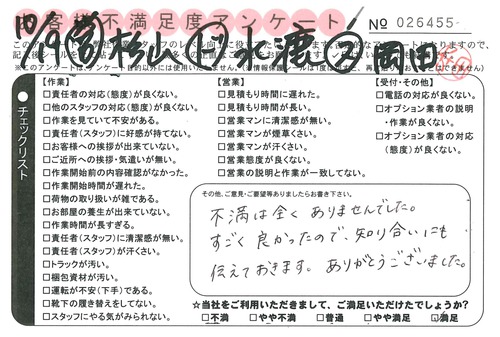 お客様不満足度アンケート
No 026455
10/9 杉山 水鹿 岡田
チェックリスト
【作業】
□責任者の対応(態度)が良くない。
□他のスタッフの対応(態度)が良くない。
□作業を見ていて不安がある。
□責任者(スタッフ)に好感が持てない。
□お客様への挨拶が出来ていない。
□ご近所への挨拶・気遣いが無い。
□作業開始前の内容確認がなかった。
□作業開始時間が遅れた。
□荷物の取り扱いが雑である。
□お部屋の養生が出来ていない。
□作業時間が長すぎる。
□責任者(スタッフ)に清潔感が無い。
□責任者(スタッフ)が汗くさい。
□トラックが汚い。
□梱包資材が汚い。
□運転が不安(下手)である。
□靴下の履き替えをしてない。
□スタッフにやる気がみられない。
【営業】
□見積もり時間に遅れた。
□見積もり時間が長い。
□営業マンに清潔感が無い。
□営業マンが煙草くさい。
□営業マンが汗くさい。
□営業態度が良くない。
□営業の説明と作業が一致してない。
【受付・その他】
□電話の対応が良くない。
□オプション業者の説明
・作業が良くない。
□オプション業者の対応
(態度)が良くない。
その他、ご意見・ご要望等ありましたらお書き下さい。
不満は全くありませんでした。
すごく良かったので、知り合いにも
伝えておきます。ありがとうございました。
☆当社をご利用いただきまして、ご満足いただけたでしょうか?
□不満 □やや不満 □普通 □やや満足 ☑満足